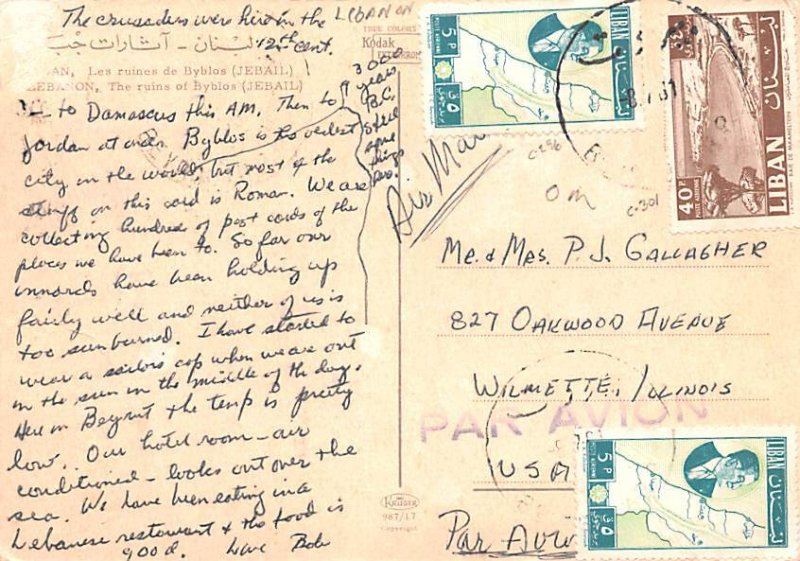 The crusaders were here in the
12th cent.
LIBANON
لبنان - آثارات جب
AN, Les ruines de Byblos (JEBAIL)
LEBANON, The ruins of Byblos (JEBAIL)
TRUE COLORS
Kodak
EKTACHROME
3000
years
B.C.
Steel
some
things
too.
to Damascus this AM. Then to
Jordan at once. Byblos is the oldest
city in the world, but most of the
stuff on this card is Roman. We are
collecting hundreds of post cards of the
places we have been to. So far our
innards have been holding up
fairly well and neither of us is
too sunburned. I have started to
wear a sailors cap when we are out
in the sun in the middle of the day.
Here in Beyrut the temp is pretty
low. Our hotel room - air
conditioned - looks out over the
sea. We have been eating in a
Lebanese restaurant & the food is
good. Love Bob
KRÜGER
987/17
Copyright
Air Mail
C-296
C-301
Om
Mr. & Mrs. P. J. Gallagher
827 Oakwood Avenue
Wilmette, Illinois
USA
PAR AVION
Par Avion
5P
LIBAN
لبنان
40P
LIBAN
لبنان
BAIE DE MAAMELTEIN
5P
LIBAN
لبنان